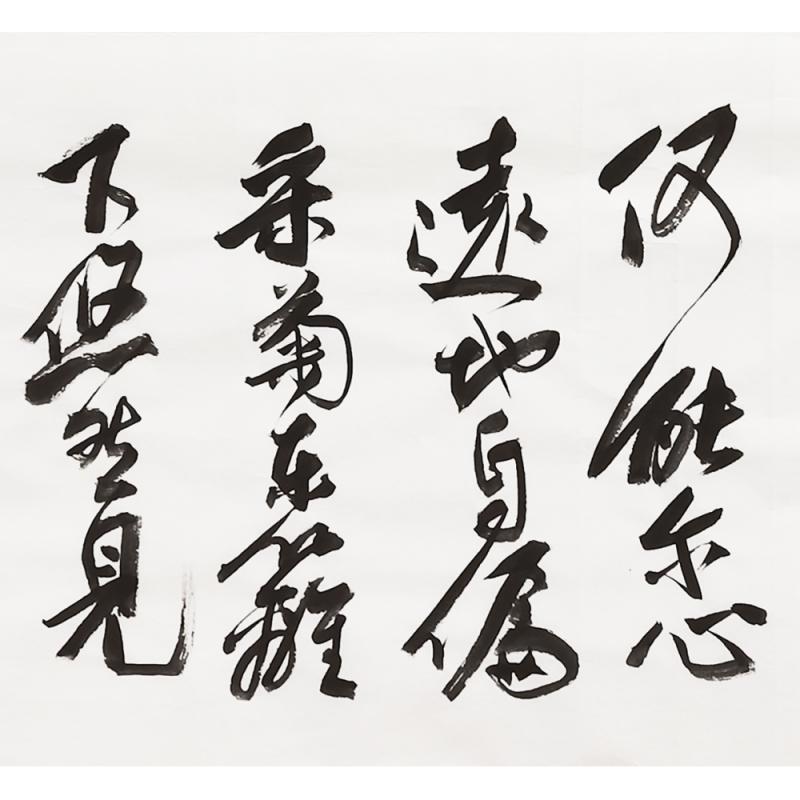 何能尔心
遠地自偏
采菊东籬
下悠然見